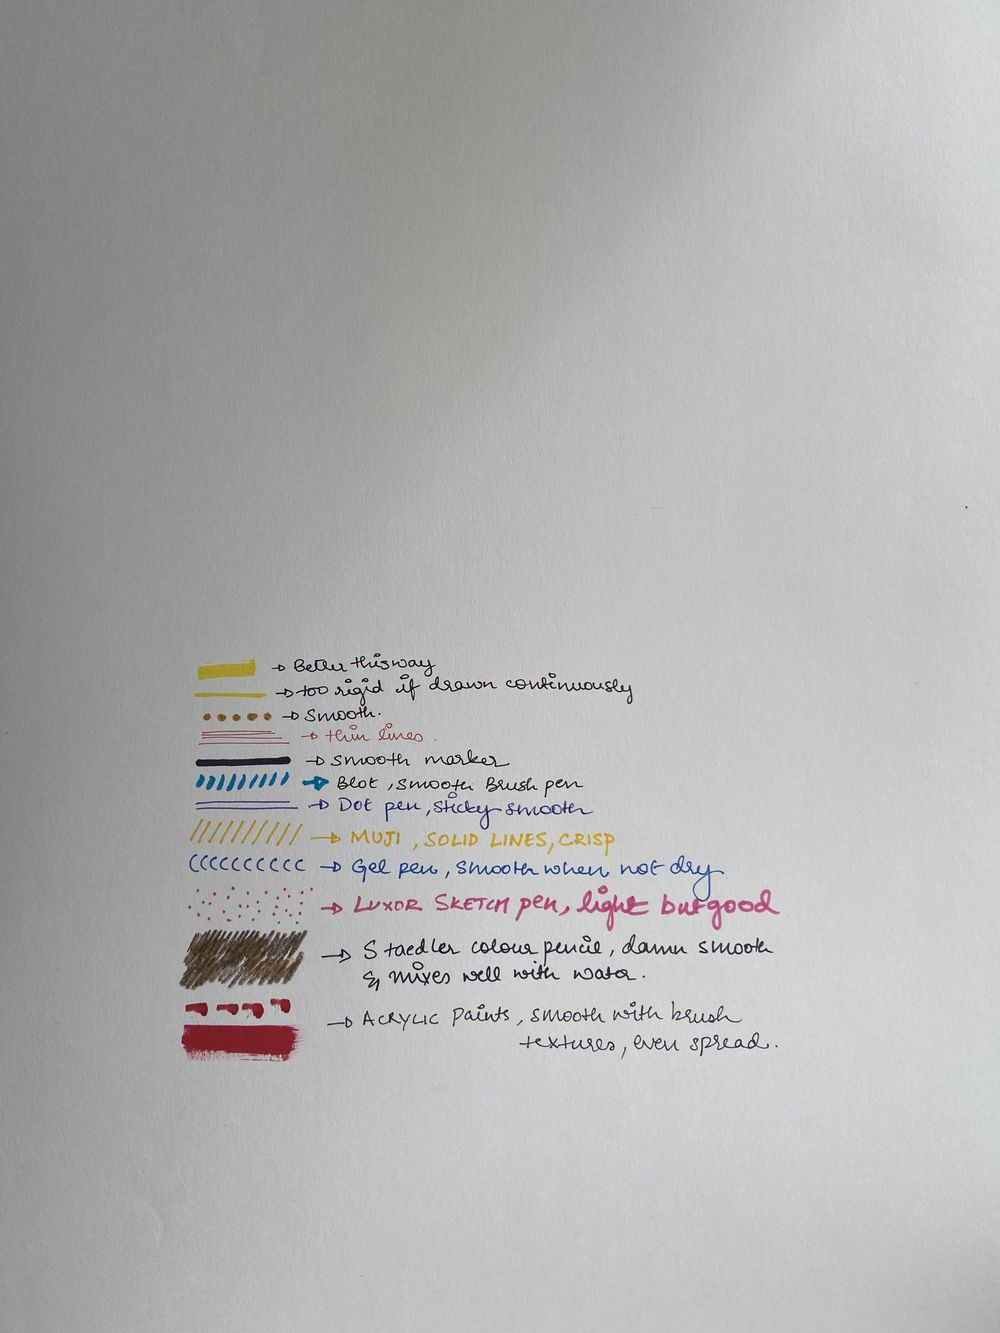 → Better this way
→ too rigid if drawn continuously
→ Smooth.
→ thin lines.
→ smooth marker
→ Blot, smooth Brush pen
→ Dot pen, sticky smooth
→ MUJI, SOLID LINES, CRISP
→ Gel pen, smooth when not dry
→ LUXOR SKETCH pen, light but good
→ Staedler colour pencil, damn smooth
& mixes well with water.
→ ACRYLIC Paints, smooth with brush
textures, even spread.